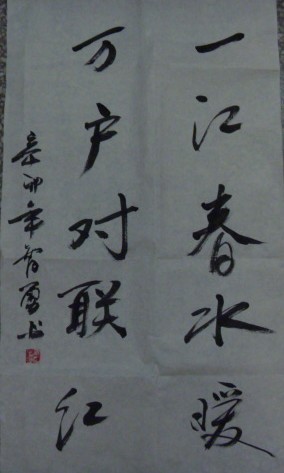 一江春水暖
万户对联红
辛卯年智勇书